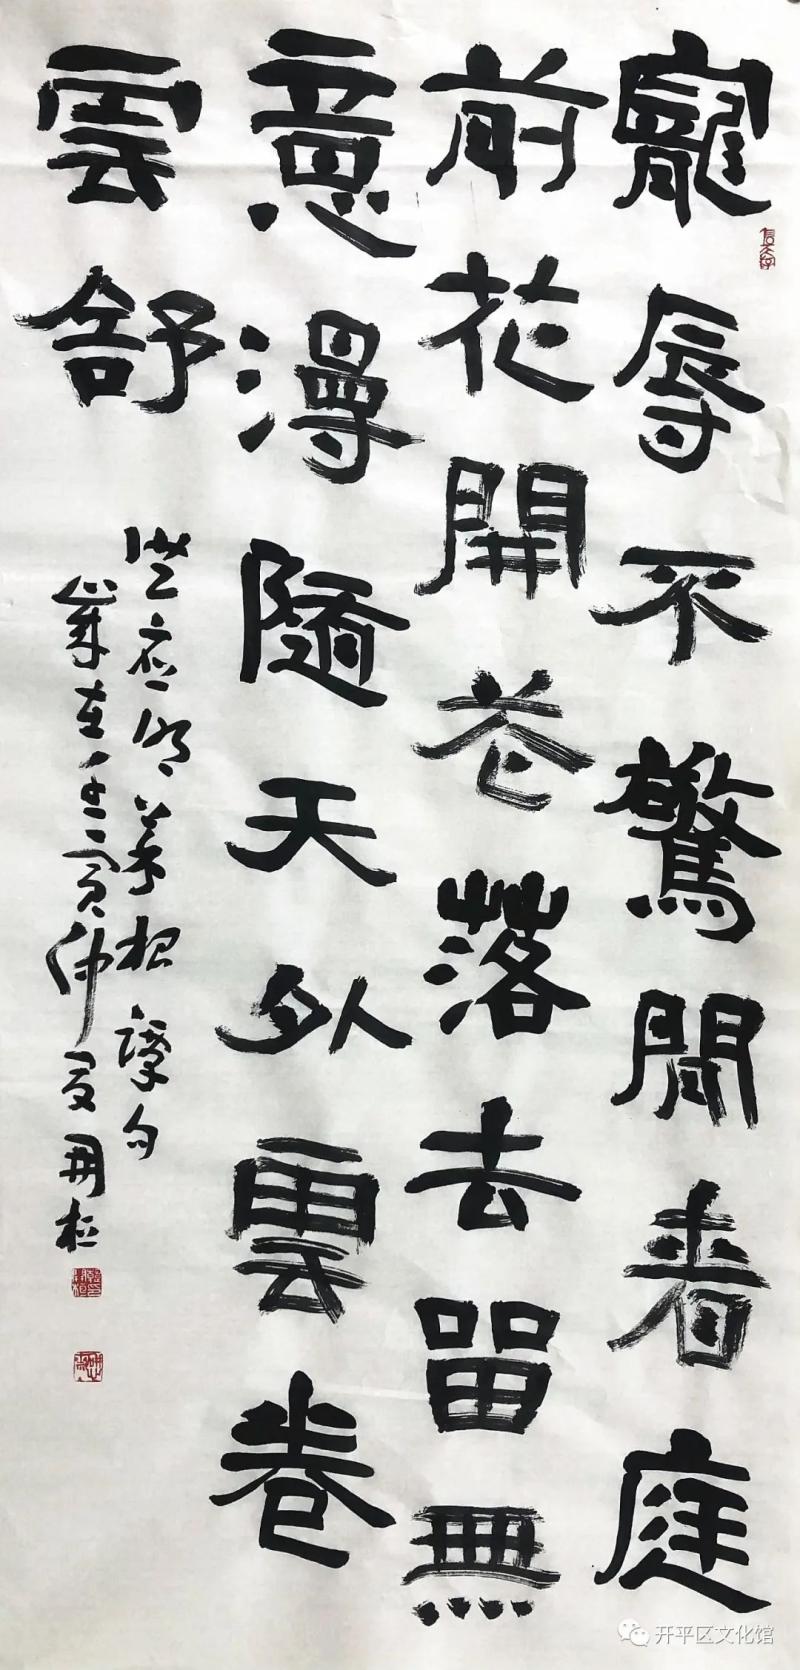 寵辱不驚閒看庭
前花開花落去留無
意漫隨天外雲卷
雲舒
洪應明菜根譚句
歲在壬寅仲夏
开平区文化馆